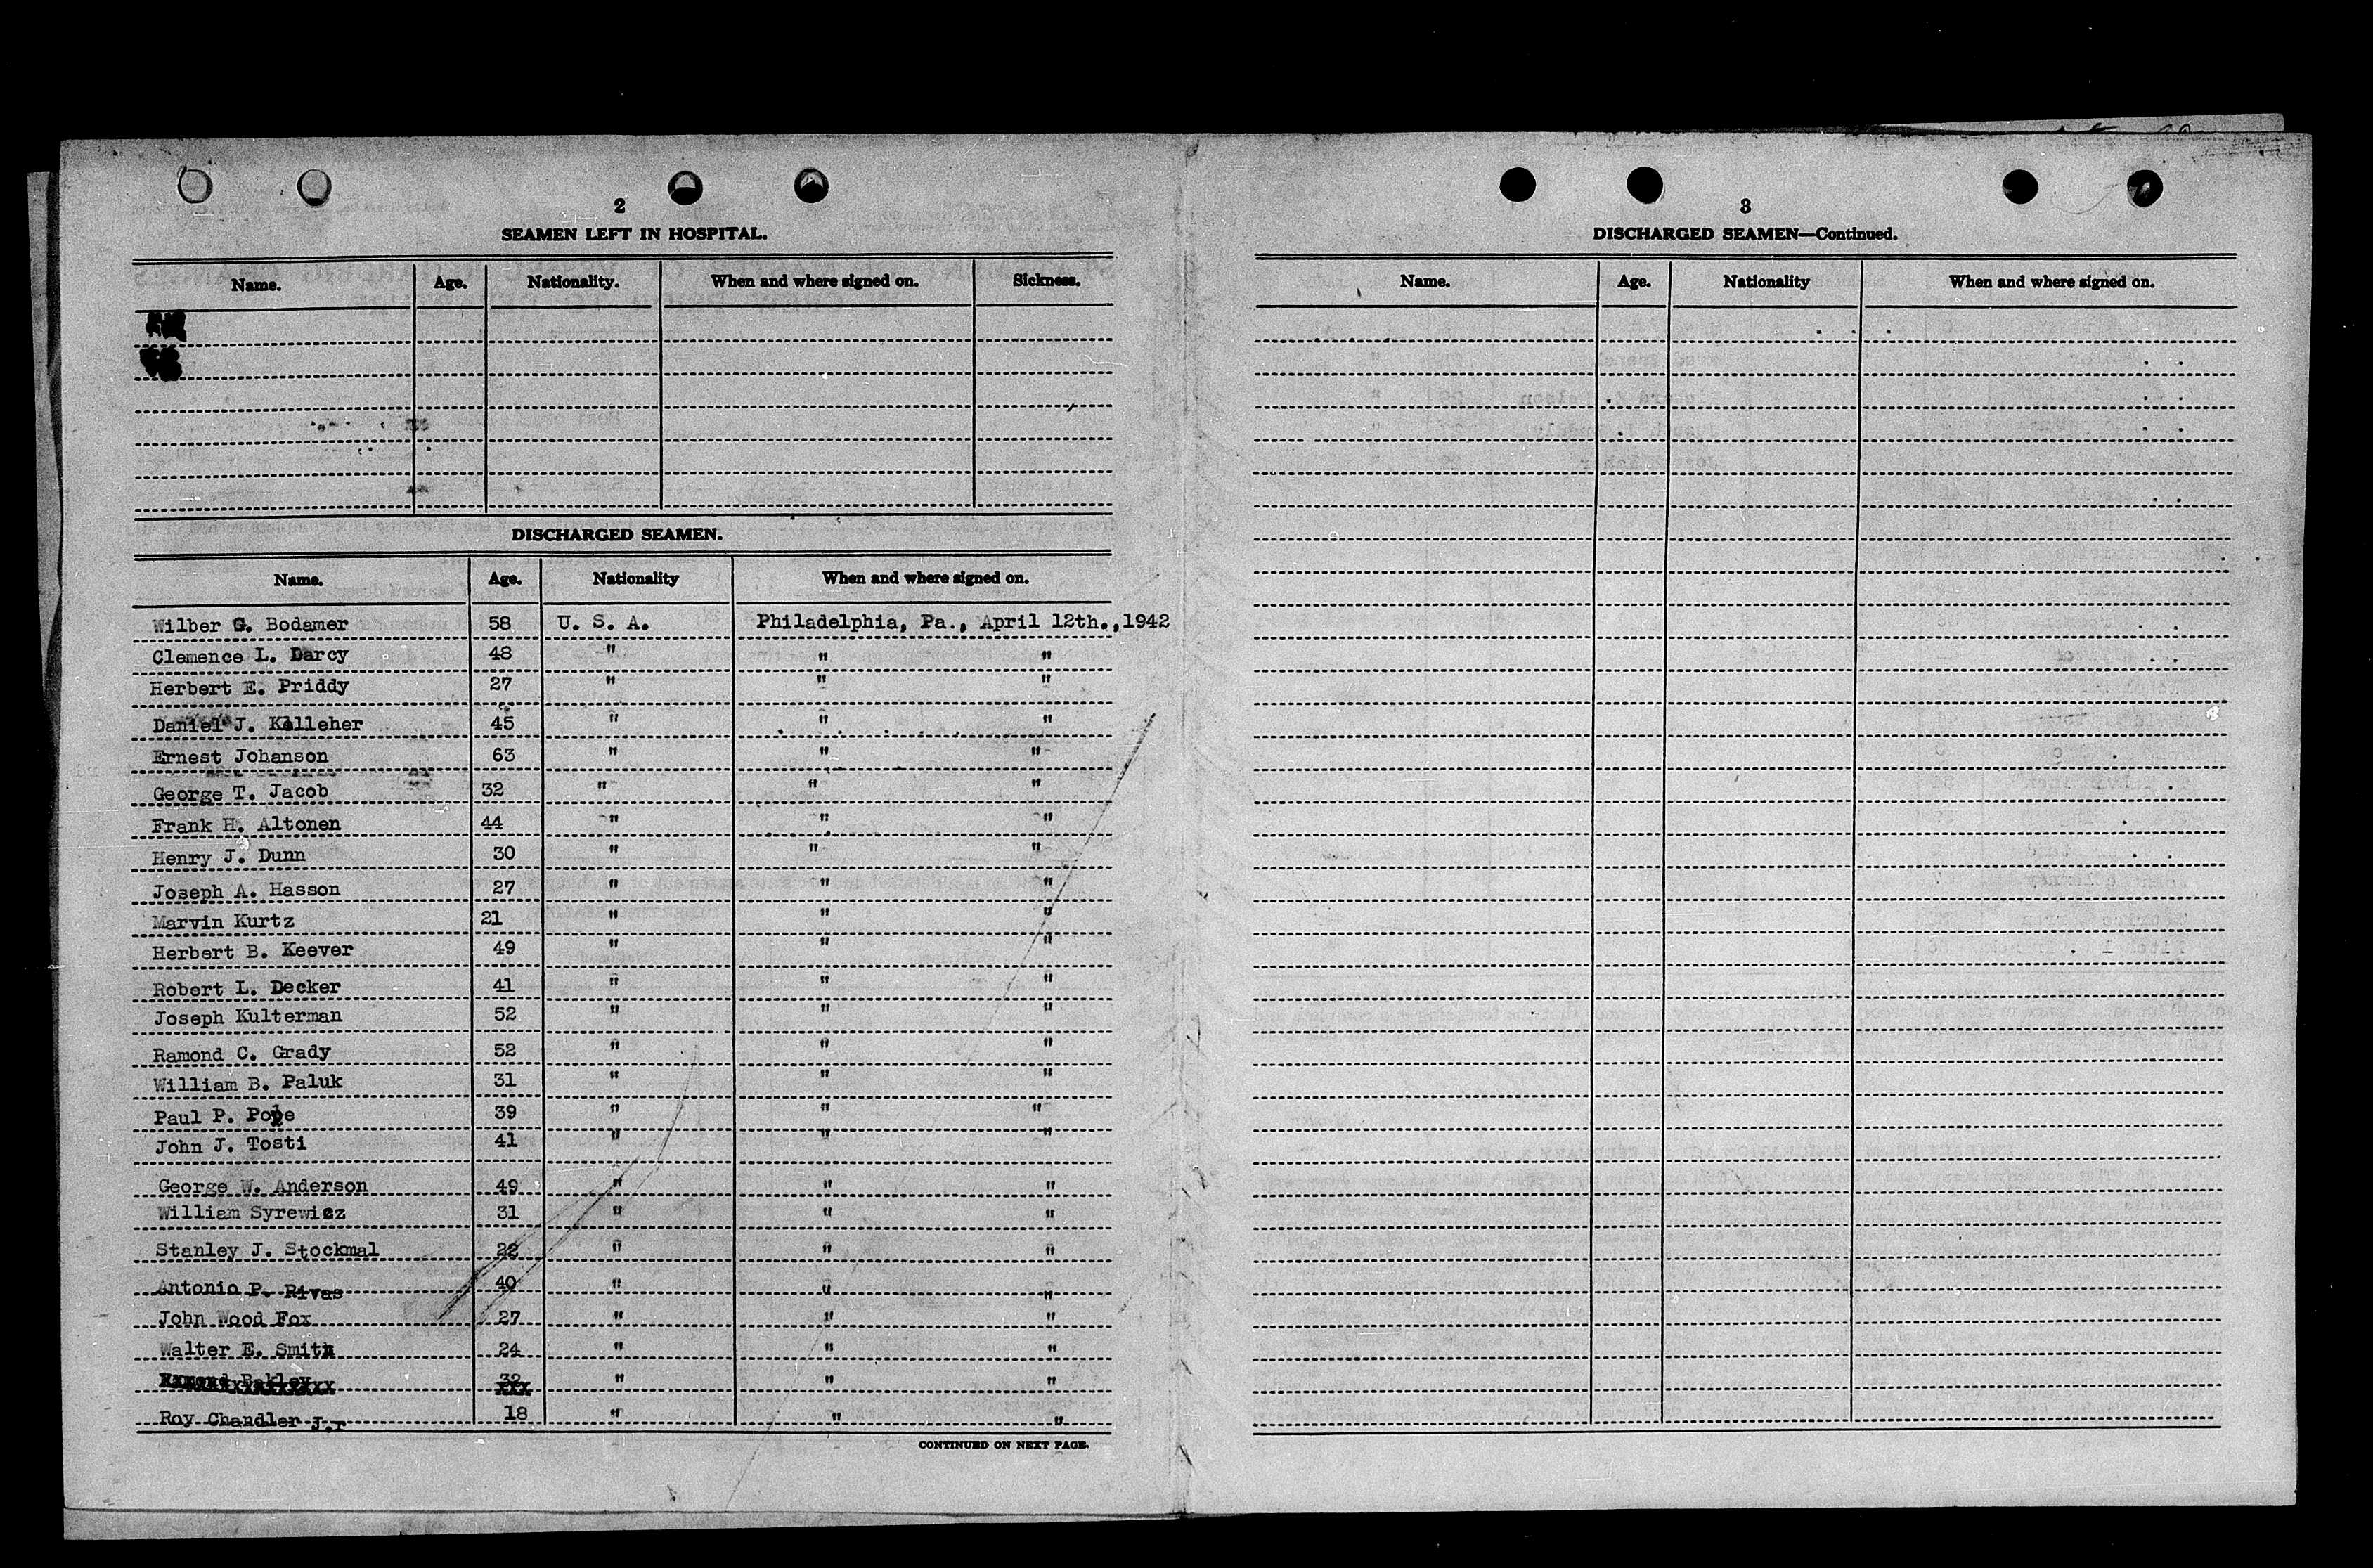 2
SEAMEN LEFT IN HOSPITAL.
Name. Age. Nationality. When and where signed on. Sickness.
DISCHARGED SEAMEN.
Name. Age. Nationality When and where signed on.
Wilber G. Bodamer 58 U. S. A. Philadelphia, Pa., April 12th.,1942
Clemence L. Darcy 48 " " "
Herbert E. Priddy 27 " " "
Daniel J. Kelleher 45 " " "
Ernest Johanson 63 " " "
George T. Jacob 32 " " "
Frank H. Altonen 44 " " "
Henry J. Dunn 30 " " "
Joseph A. Hasson 27 " " "
Marvin Kurtz 21 " " "
Herbert B. Keever 49 " " "
Robert L. Decker 41 " " "
Joseph Kulterman 52 " " "
Ramond C. Grady 52 " " "
William B. Paluk 31 " " "
Paul P. Pope 39 " " "
John J. Tosti 41 " " "
George W. Anderson 49 " " "
William Syrewicz 31 " " "
Stanley J. Stockmal 22 " " "
Antonio P. Rivas 40 " " "
John Wood Fox 27 " " "
Walter E. Smith 24 " " "
Bakley 32 " " "
Roy Chandler J.r 18 " " "
CONTINUED ON NEXT PAGE.
3
DISCHARGED SEAMEN—Continued.
Name. Age. Nationality When and where signed on.